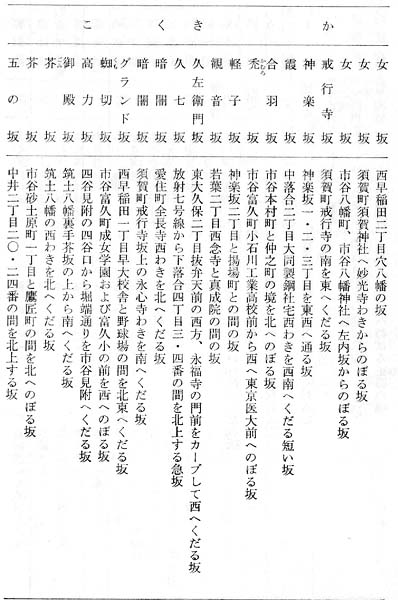 女坂 西早稲田二丁目穴八幡の坂
女坂 須賀町須賀神社へ妙光寺わきからのぼる坂
女坂 市谷八幡町、市谷八幡神社へ左内坂からのぼる坂
か 戒行寺坂 須賀町戒行寺の南を東へくだる坂
神楽坂 神楽坂一・二・三丁目を東西へ通る坂
霞坂 中落合二丁目大同製鋼社宅西わきを西南へくだる短い坂
合羽坂 市谷本村町と仲之町の境を北へのぼる坂
禿坂 市谷富久町小石川工業高校前から西へ東京医大前へのぼる坂
軽子坂 神楽坂二丁目と揚場町との間の坂
観音坂 若葉二丁目西念寺と真成院の間の坂
き 久左衛門坂 東大久保二丁目抜弁天前の西方、永福寺の門前をカーブして西へくだる坂
久七坂 放射七号線から下落合四丁目三・四番の間を北上する急坂
く 暗闇坂 愛住町全長寺西わきを北へくだる坂
暗闇坂 須賀町戒行寺坂上の永心寺わきを南へくだる坂
グランド坂 西早稲田一丁目早大校舎と野球場の間を北東へくだる坂
蜘切坂 市谷富久町成女学園および富久小の前を西へのぼる坂
こ 高力坂 四谷見附の四谷口から堀端通りを市谷見附へくだる坂
御殿坂 筑土八幡裏手芥坂の上から南へくだる坂
芥坂 筑土八幡の西わきを北へくだる坂
芥坂 市谷砂土原町一丁目と鷹匠町の間を北へのぼる坂
五の坂 中井二丁目二〇・二四番の間を北上する坂